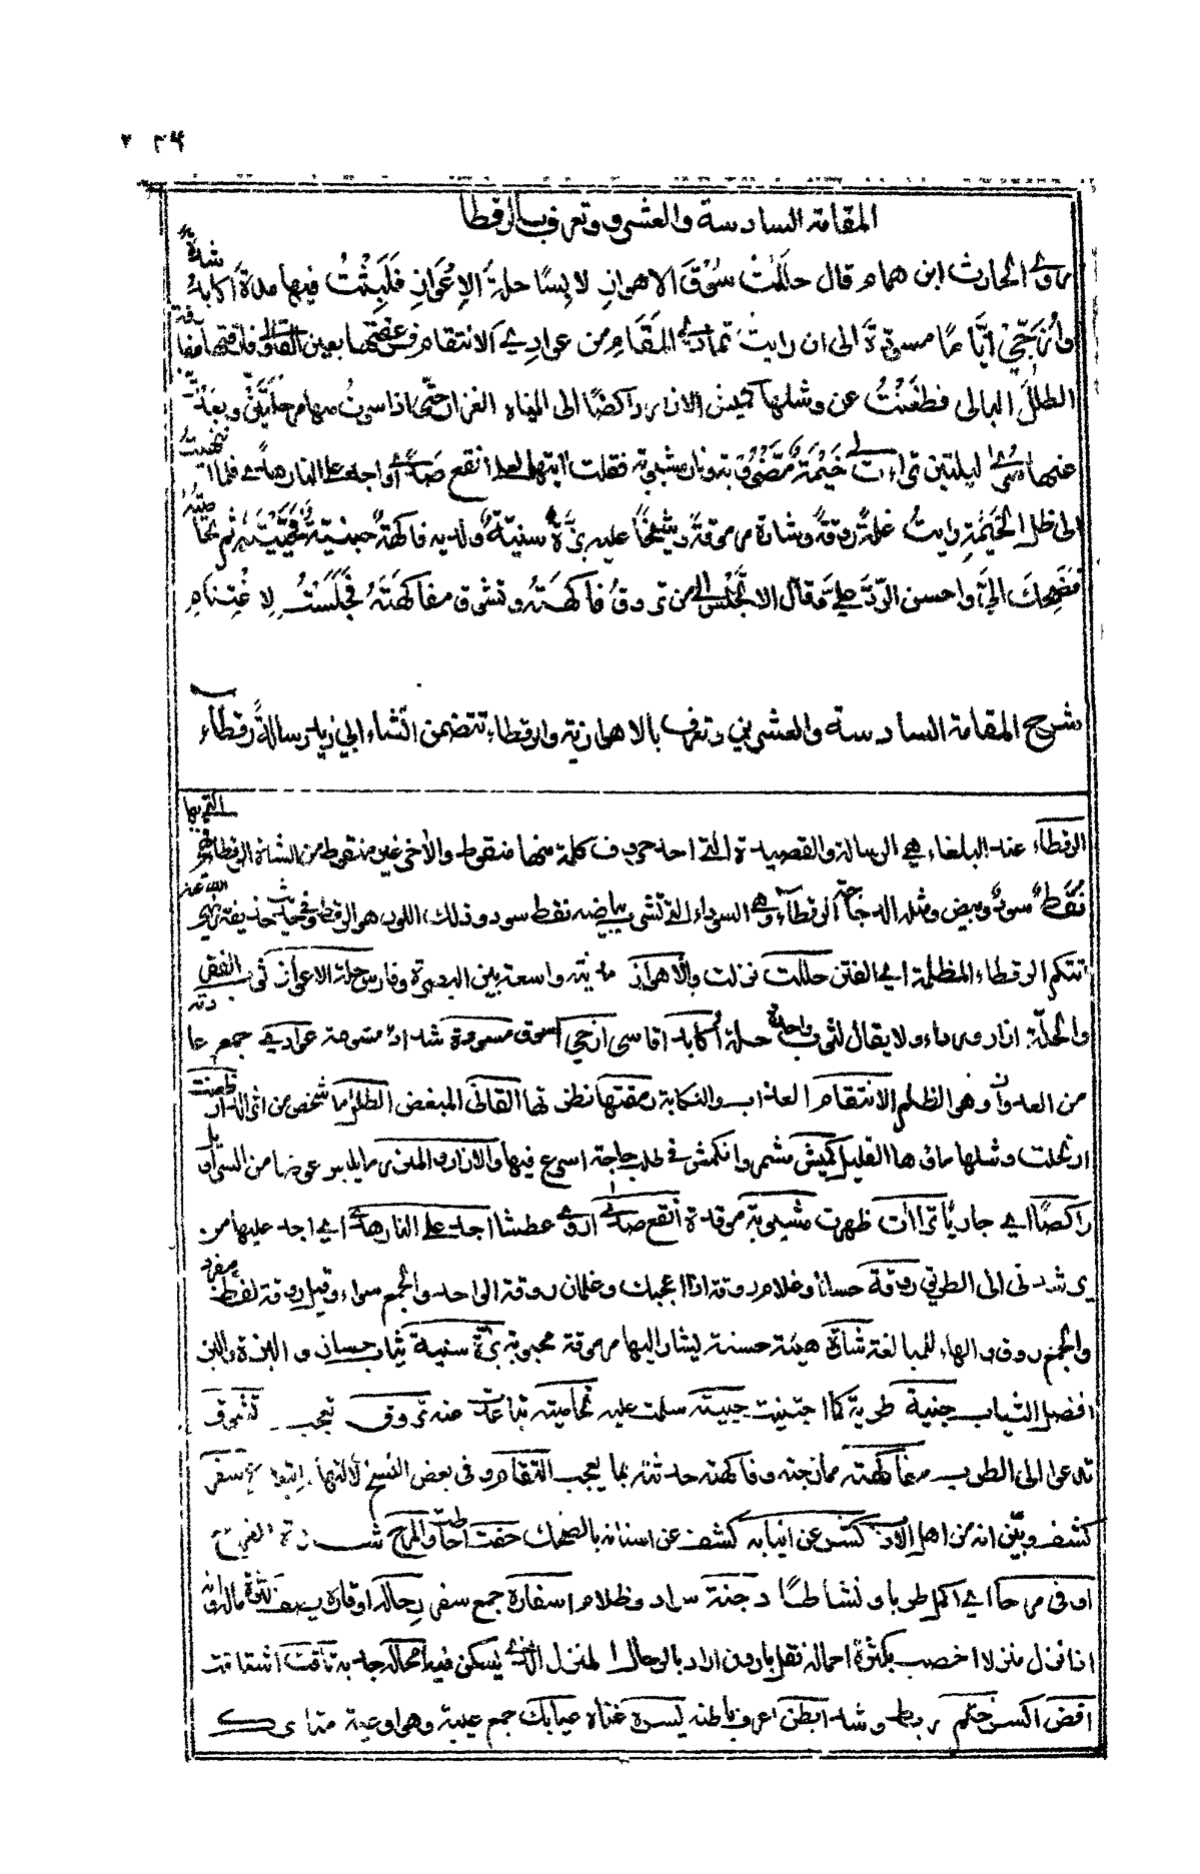 ٢٣٤
المقامة السادسة والعشرون وتعرف بالرقطا
روى الحارث ابن همام قال حَلَلْتُ سُوْقَ الاهوازِ لابِسًا حلةَ الإِعْوَازِ فَلَبِثْتُ فيها مدةً اكابدُ شدةً
وأُزَجّي ايَّامًا مسودّةً الى ان رايتُ تماديَ المَقَامِ من عوادِي الانتقام فرمقتها بعين القالى وفارقتها مفارقة
الطللِ البالى فظعَنْتُ عن وشلها كميش الازار راكضًا الى المياه الغزار حتى اذا سرتُ منها مرحلتين وبعدتُ
عنها سُرى ليلتين تراءت لي خَيْمَةٌ مَضْرُوبة ونار مشبوبة فقلت آتيهما لعلى انقع صدًى او اجد على النار هدى فلما انتهيتُ
الى ظل الخَيْمَةِ رايتُ غلمةً رُوقةً وشارة مرموقةً وشيخًا عليه بزّة سنيّة ولديه فاكهةٌ جنيّةٌ فحَيَّيْتُه ثم تحاميتُه
فضحك اليَّ واحسن الردَّ عليَّ وقال الا تجلس الى من تروقُ فاكهتُه وتشوق مفاكهتُه فجَلَسْتُ لاغتنامِ
شرح المقامة السادسة والعشرين وتعرف بالاهوازية والرقطاء تتضمن انشاء ابي زيد رسالةً رقطآء
الرقطاء عند البلغاء هي الرسالة والقصيدة التي احد حروف كلمة منها منقوط والأخر غير منقوط من الشاة الرقطاء التي بها
نُقَطٌ سودٌ وبيض ومثله الدجاجة الرقطاء وهي السوداء التي تشى ببياضه نقط سود وذلك اللون هو الرقط وفي حديث حذيفة رضي الله عنه
اتتكم الرقطاء المظلمة اي الفتن حللت نزلت والاهواز مدينة واسعة بين البصرة وفارس حلة الاعواز في الفقر
والحلّة ازار ورداء ولا يقال لثوب واحد حلة أكابد اقاسى ازجي اسوق مسودة شدائد متوجة عوادي جمع عا
من العدوان وهو الظلم الانتقام العذاب والنكاية رمقتها نظرتها القالى المبغض الطلل ما شخص من اثر الدار ظعنت
ارتحلت وشلها ماؤها القليل كميش مشمر وانكمش في طلب حاجته اسرع فيها والازار والمئزر ما يلبس عوضا من السراويل
راكضًا اي جاريًا تراءت ظهرت مشبوبة موقدة أنقع صدى اروي عطشا اجد على النار هدى اي اجد عليها من
يرشدنى الى الطريق روقة حسانا وغلام روقة اذا اعجبك وغلمان روقة الواحد والجمع سواء وقيل روقة لفظ مفرد
والجمع روق والهاء للمبالغة شارة هيئة حسنة يشار اليها مرموقة محبوبة بزّة سنية ثياب حسان و البزة والبز
افضل الثياب جنية طرية كما اجتنيت حييته سلمت عليه تحاميته تباعدت عنه تروق تعجب تشوق
تدعوا الى الطرب مفاكهته ممازجته وفاكهته حدثته بما يعجب وفي بعض النسخ لالتهام سفر
كشف وبيّن انه من اهل الادب كشر عن انيابه كشف عن اسنانه بالضحك حفت احاطت والمرح شدة الفرح
اوفى مرحا اي اكمل طربا ونشاطًا دجنة سواد وظلام اسفاره جمع سفر رحاله اوقاره يصف كثرة ماله وانه
اذا نزل منزلا اخصب بكثرة احماله فقيل بارون اراد بالرحال المنزل الذي يسكن فيه امحاله جدبه تاقت اشتاقت
افض اكسر ختم ربط وشد ابطن اعرف باطنه يسره غناه عيابك جمع عيبة وهي اوعية متاعك